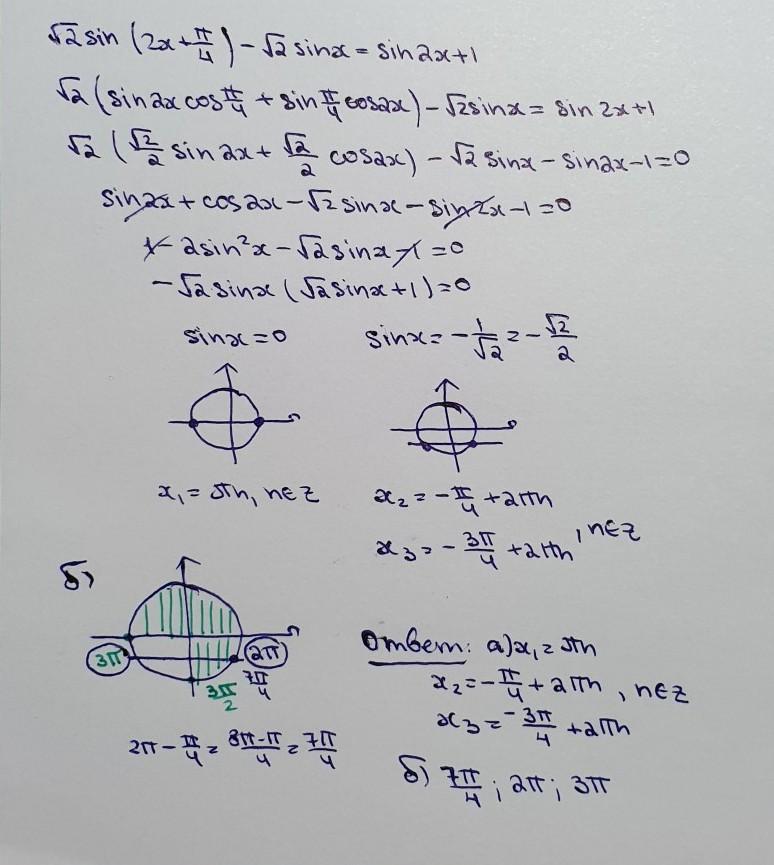 √2 sin (2x+π/4) - √2 sinx = sin2x+1
√2 (sin2x cosπ/4 + sinπ/4 cos2x) - √2 sinx = sin 2x+1
√2 (√2/2 sin 2x + √2/2 cos2x) - √2 sinx - sin2x-1=0
sin2x + cos2x - √2 sinx - sin2x-1=0
1 - 2sin²x - √2 sinx - 1 = 0
-√2 sinx (√2 sinx+1)=0
sinx=0 sinx= -1/√2 = -√2/2
x₁ = πn, n∈Z x₂ = -π/4 + 2πn
x₃ = -3π/4 + 2πn , n∈Z
б)
3π 2π
3π/2 7π/4
2π - π/4 = 8π-π/4 = 7π/4
Ответ: а) x₁ = πn
x₂ = -π/4 + 2πn , n∈Z
x₃ = -3π/4 + 2πn
б) 7π/4 ; 2π ; 3π